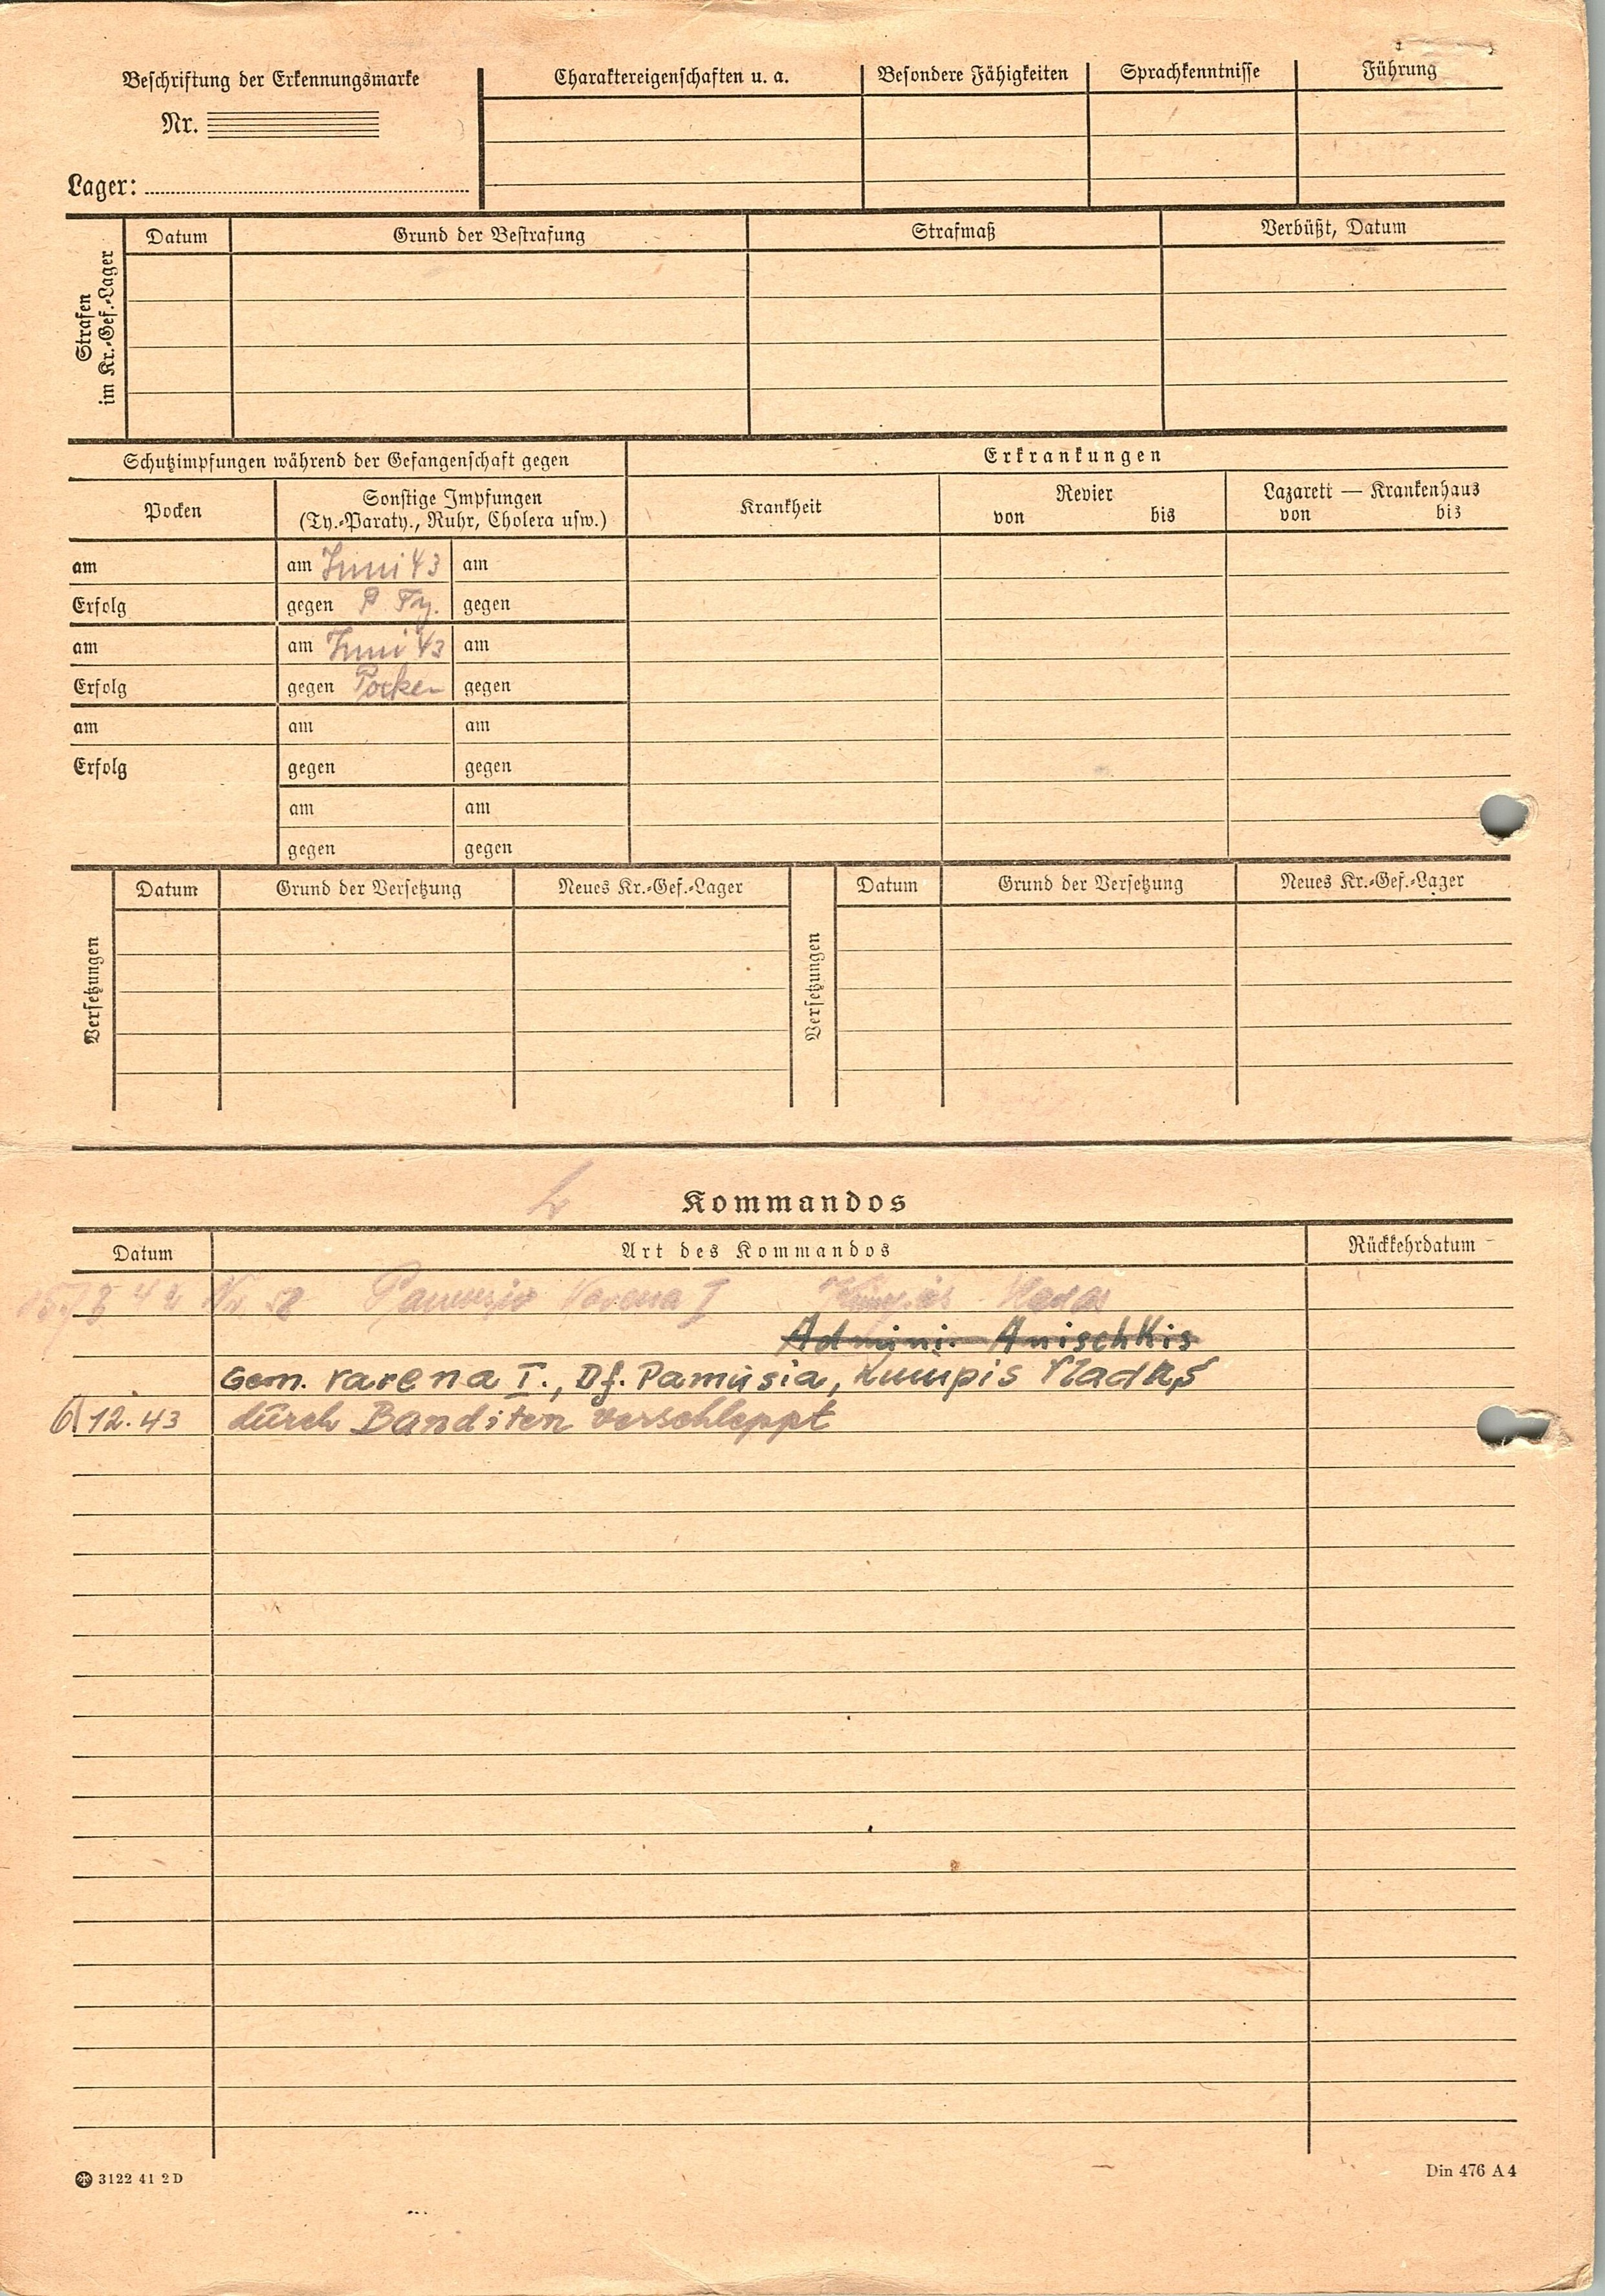 Beschriftung der Erkennungsmarke
Nr.
Lager:
Charaktereigenschaften u. a.
Besondere Fähigkeiten
Sprachkenntnisse
Führung
Strafen
im Kr.-Gef.-Lager
Datum
Grund der Bestrafung
Strafmaß
Verbüßt, Datum
Schutzimpfungen während der Gefangenschaft gegen
Erkrankungen
Pocken
Sonstige Impfungen
(Ty.-Paraty., Ruhr, Cholera usw.)
Krankheit
Revier
von bis
Lazarett — Krankenhaus
von bis
am am Juni 43 am
Erfolg gegen P. Ty. gegen
am am Juni 43 am
Erfolg gegen Pocken gegen
am am am
Erfolg gegen gegen
am am
gegen gegen
Versetzungen
Datum Grund der Versetzung Neues Kr.-Gef.-Lager
Versetzungen
Datum Grund der Versetzung Neues Kr.-Gef.-Lager
Kommandos
Datum Art des Kommandos Rückkehrdatum
42 Varena I
Admini. Anischkis
Gem. Varena I., Df. Pamusia, Kumpis Vladas
6 12.43 durch Banditen verschleppt
3122 41 2 D
Din 476 A 4